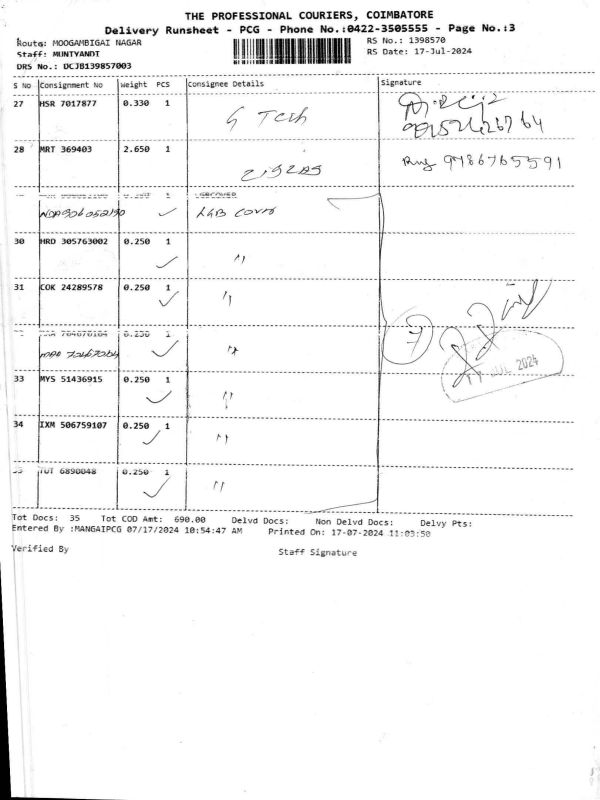 THE PROFESSIONAL COURIERS, COIMBATORE
Delivery Runsheet - PCG - Phone No.:0422-3505555 - Page No.:3
Route: MOOGAMBIGAI NAGAR RS No.: 1398570
Staff: MUNIYANDI RS Date: 17-Jul-2024
DRS No.: DCJB139857003
S No Consignment No Weight PCS Consignee Details Signature
27 HSR 7017877 0.330 1
G Tech
28 MRT 369403 2.650 1
9786765591
1
LGB
30 HRD 305763002 0.250 1
"
31 COK 24289578 0.250 1
"
7
0.250 1
"
17 JUL 2024
33 MYS 51436915 0.250 1
"
34 IXM 506759107 0.250 1
"
35 TUT 6890048 0.250 1
"
Tot Docs: 35 Tot COD Amt: 690.00 Delvd Docs: Non Delvd Docs: Delvy Pts:
Entered By :MANGAIPCG 07/17/2024 10:54:47 AM Printed On: 17-07-2024 11:03:50
Verified By Staff Signature